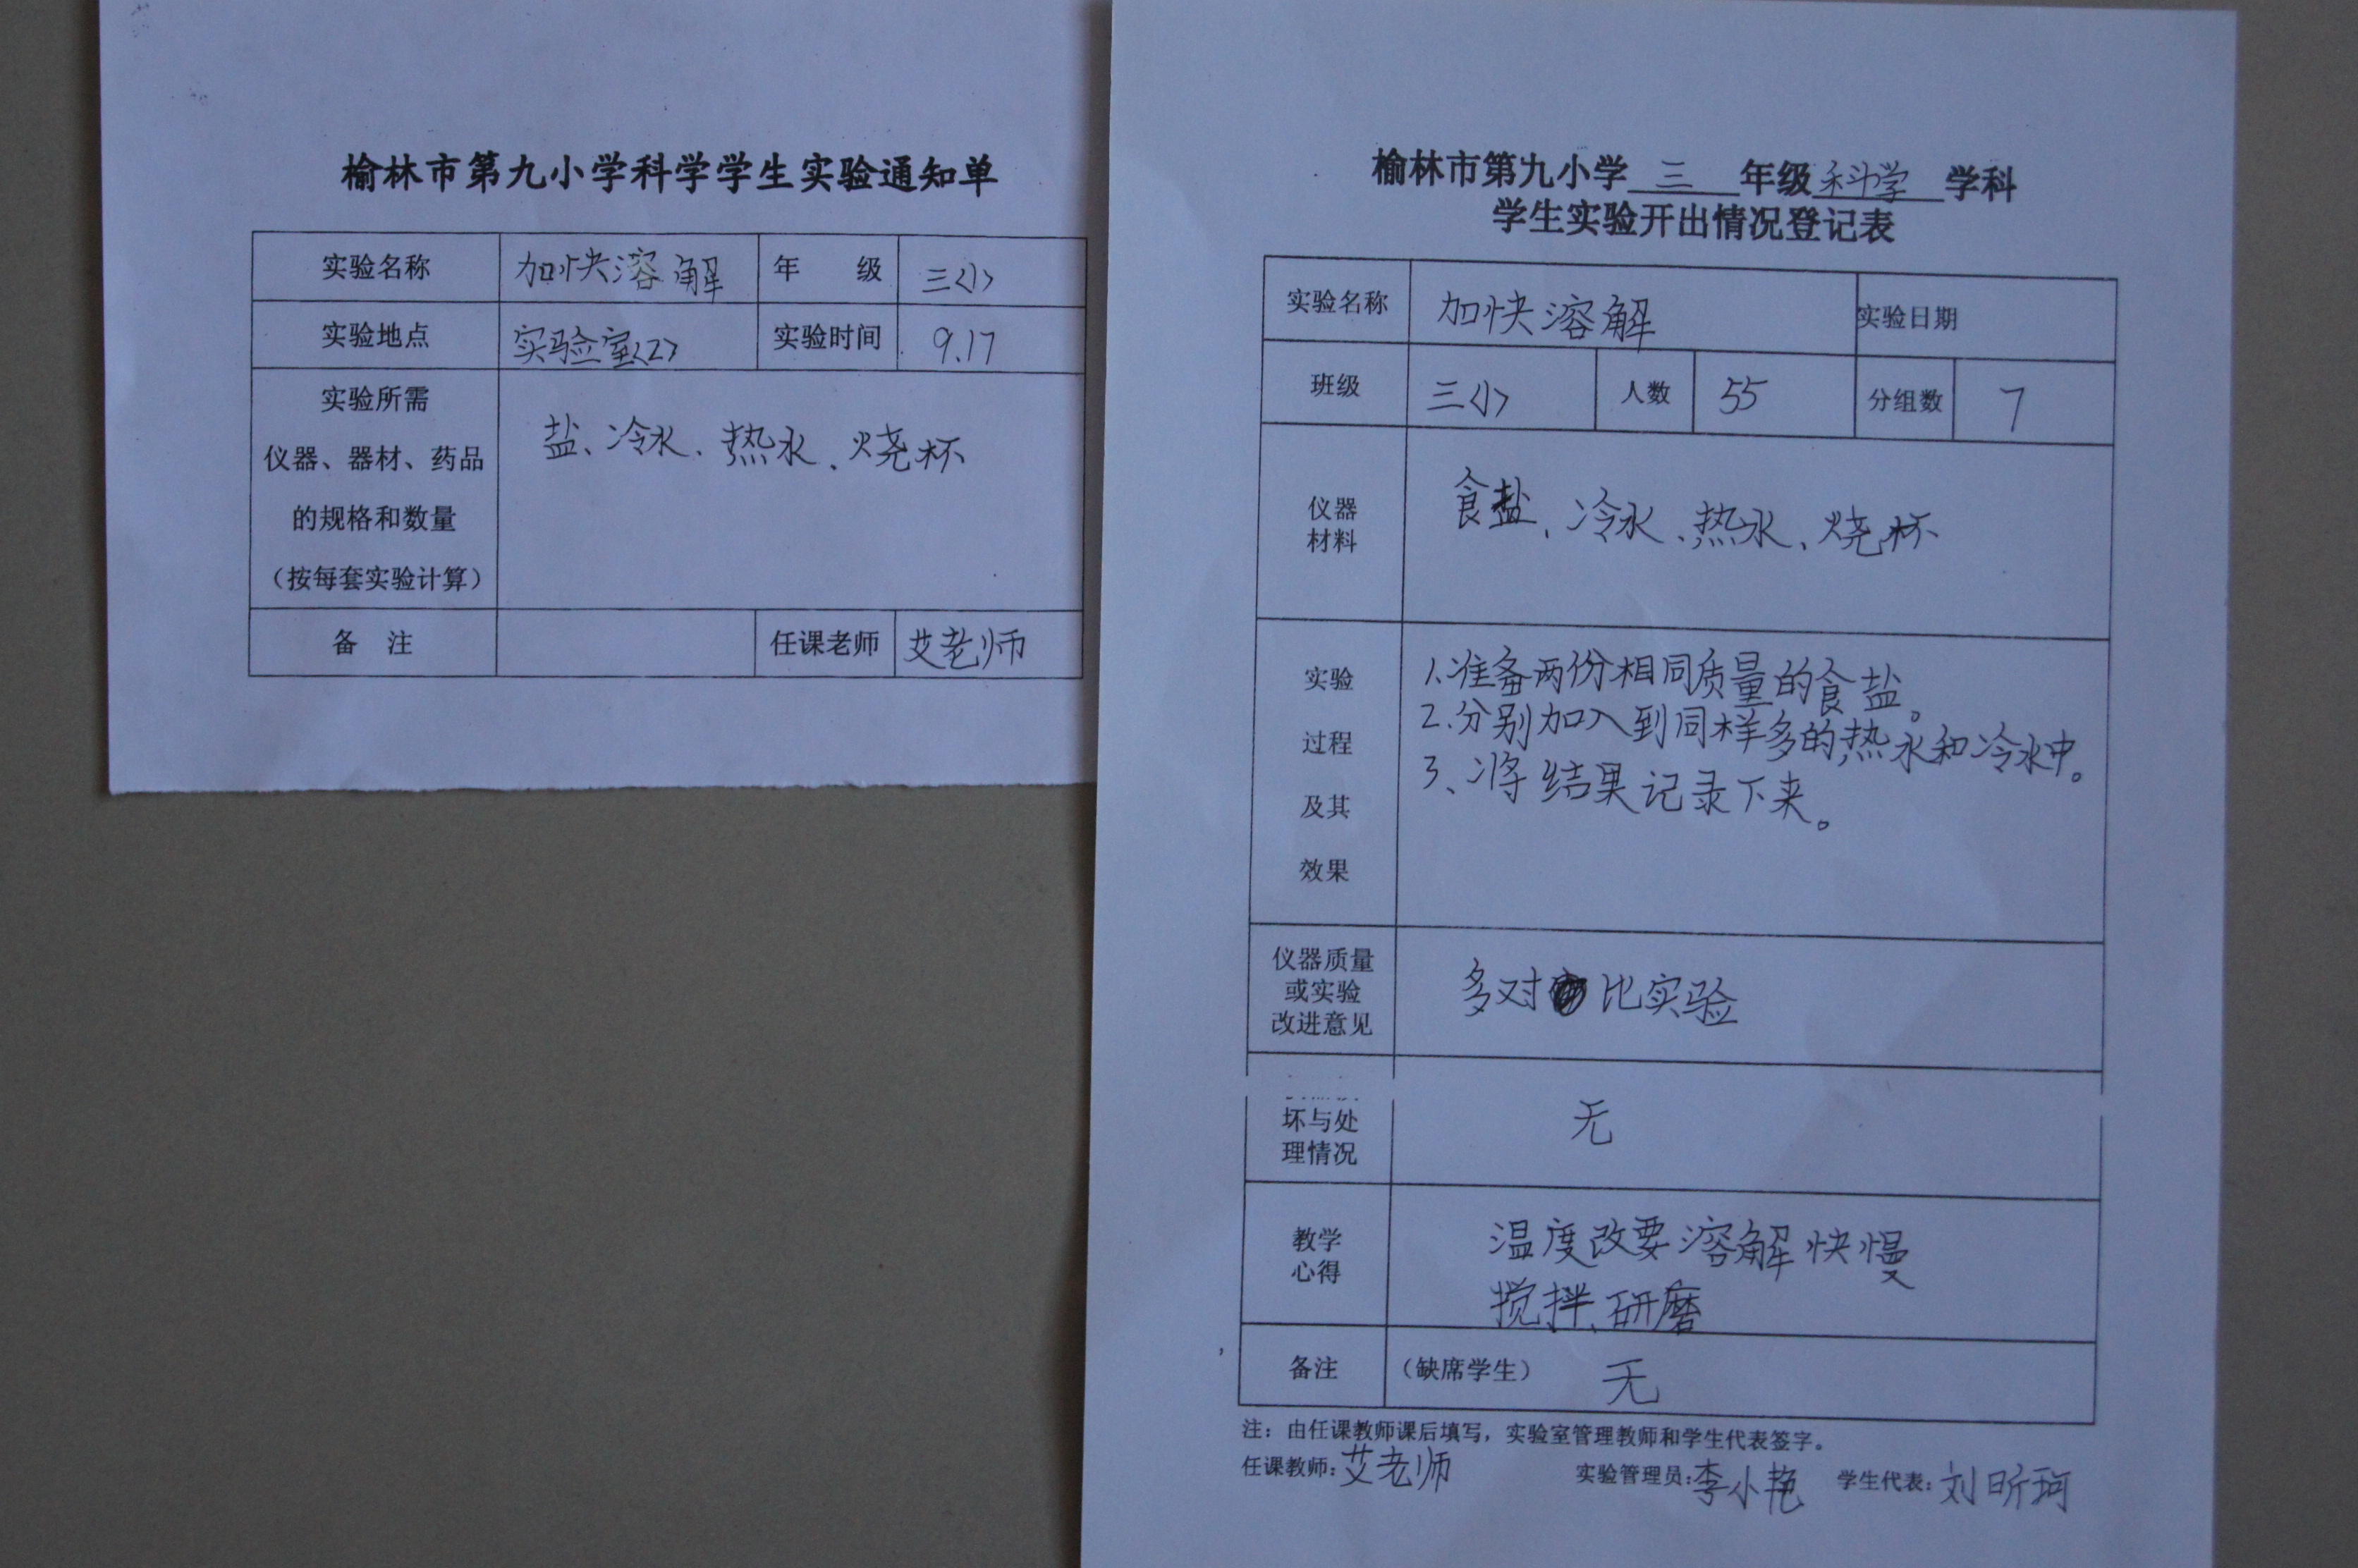 榆林市第九小学科学学生实验通知单
实验名称 加快溶解 年 级 三<1>
实验地点 实验室<2> 实验时间 9.17
实验所需
仪器、器材、药品
的规格和数量
（按每套实验计算）
盐、冷水、热水、烧杯
备 注 任课老师 艾老师
榆林市第九小学 三 年级 科学 学科
学生实验开出情况登记表
实验名称 加快溶解 实验日期
班级 三<1> 人数 55 分组数 7
仪器
材料
食盐、冷水、热水、烧杯
实验
过程
及其
效果
1.准备两份相同质量的食盐。
2.分别加入到同样多的热水和冷水中。
3、将结果记录下来。
仪器质量
或实验
改进意见
多对比实验
坏与处
理情况
无
教学
心得
温度改要溶解快慢
搅拌、研磨
备注 （缺席学生） 无
注：由任课教师课后填写，实验室管理教师和学生代表签字。
任课教师:艾老师 实验管理员:李小艳 学生代表:刘昕珂